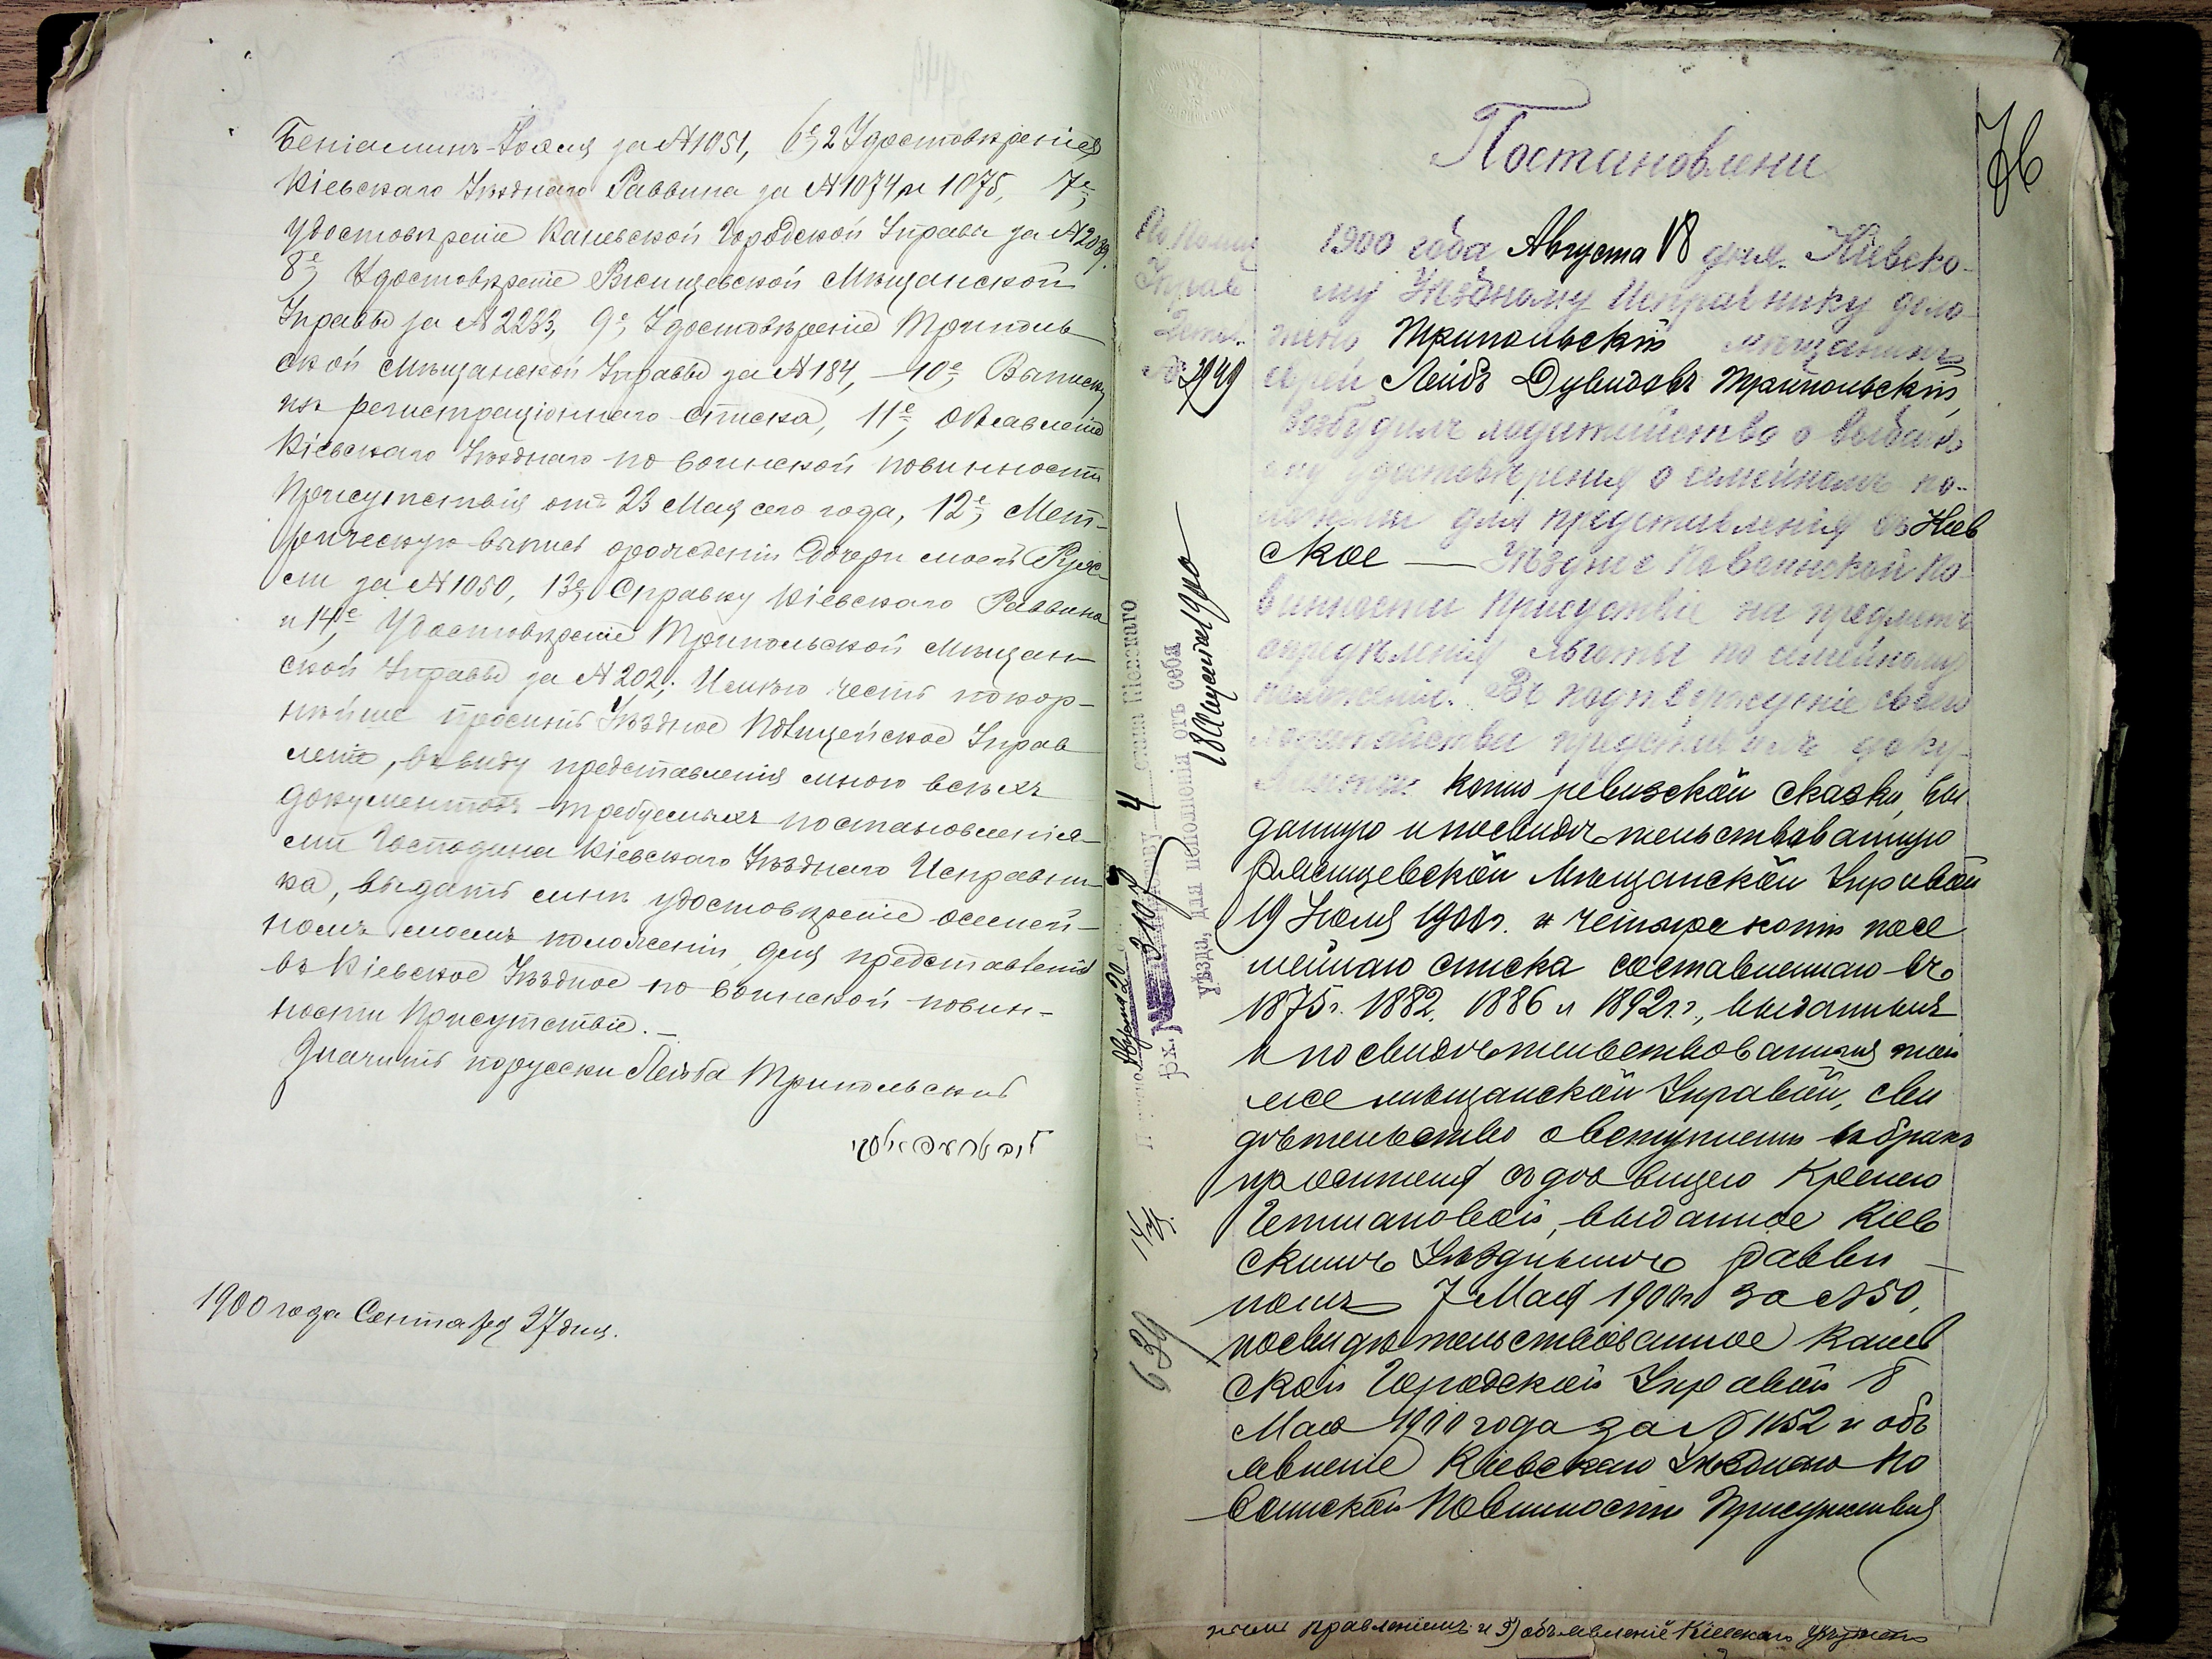 Беніаминъ-Іося за №1051, 6е, 2 Удостовѣренія
Кіевскаго Уѣзднаго Раввина за №1074 и 1075, 7е,
Удостовѣреніе Каневской Городской Управы за №2039,
8е, Удостовѣреніе Ржищевской Мѣщанской
Управы за №2233, 9е, Удостовѣреніе Триполь-
ской Мѣщанской Управы за №184, — 10е, Выписку
изъ регистраціоннаго списка, 11е, Объявленіе
Кіевскаго Уѣзднаго по воинской повинности
Присутствія отъ 23 Мая сего года, 12е, Мет-
рическую выпись о рожденіи дочери моей
за №1050, 13е, Справку Кіевскаго Раввина
и 14е, Удостовѣреніе Трипольской Мѣщан-
ской Управы за №202; Имѣю честь покор-
нѣйше просить Уѣздное Полицейское Управ
леніе, въ виду представленія мною всѣхъ
документовъ требуемыхъ постановленія-
ми Господина Кіевскаго Уѣзднаго Исправни-
ка, выдать мнѣ удостовѣреніе о семей-
номъ моемъ положеніи, для представленія
въ Кіевское Уѣздное по воинской повин-
ности Присутствіе. —
Значитъ по русски Лейба Трипольскій
1900 года Сентября 27 дня.
76
Постановлени
1900 года Августа 18 дня. Кіевско-
му Уѣздному Исправнику доло-
женъ Трипольскій мѣщанинъ
еврей Лейбъ Дувидовъ Трипольскій,
возбудилъ ходатайство о выдачѣ
ему удостовѣренія о семейномъ по-
ложеніи для представленія въ Кіев
ское — Уѣздное по воинской по-
винности Присутствіе на предметъ
опредѣленія льготы по семейному
положенію. Въ подтвержденіе своего
ходатайства представилъ доку-
менты: копію ревизской сказки, вы
данную и посвидѣтельствованную
Ржищевской Мѣщанской Управой
19 Іюля 1900 г. и четыре копіи посе
мейнаго списка составленнаго въ
1875 г. 1882, 1886 и 1892 г.г., выданныя
и посвидѣтельствованныя той
же мѣщанской Управой, сви
дѣтельство о вступленіи въ бракъ
просителя съ дѣвицею Крейною
выданное Кіев
скимъ Уѣзднымъ равви
номъ 7 Мая 1900 г за №50,
посвидѣтельствованное Канев
ской Городской Управой 8
Мая 1900 года за №1152 и объ
явленіе Кіевскаго Уѣзднаго по
воинской Повинности Присутствія
Управ
№ 2949
уѣзда, для исполненія отъ себя
18 Августа 1900
Августа 20
3107
4
639
правленіемъ и 5) объявленіе Кіевскаго